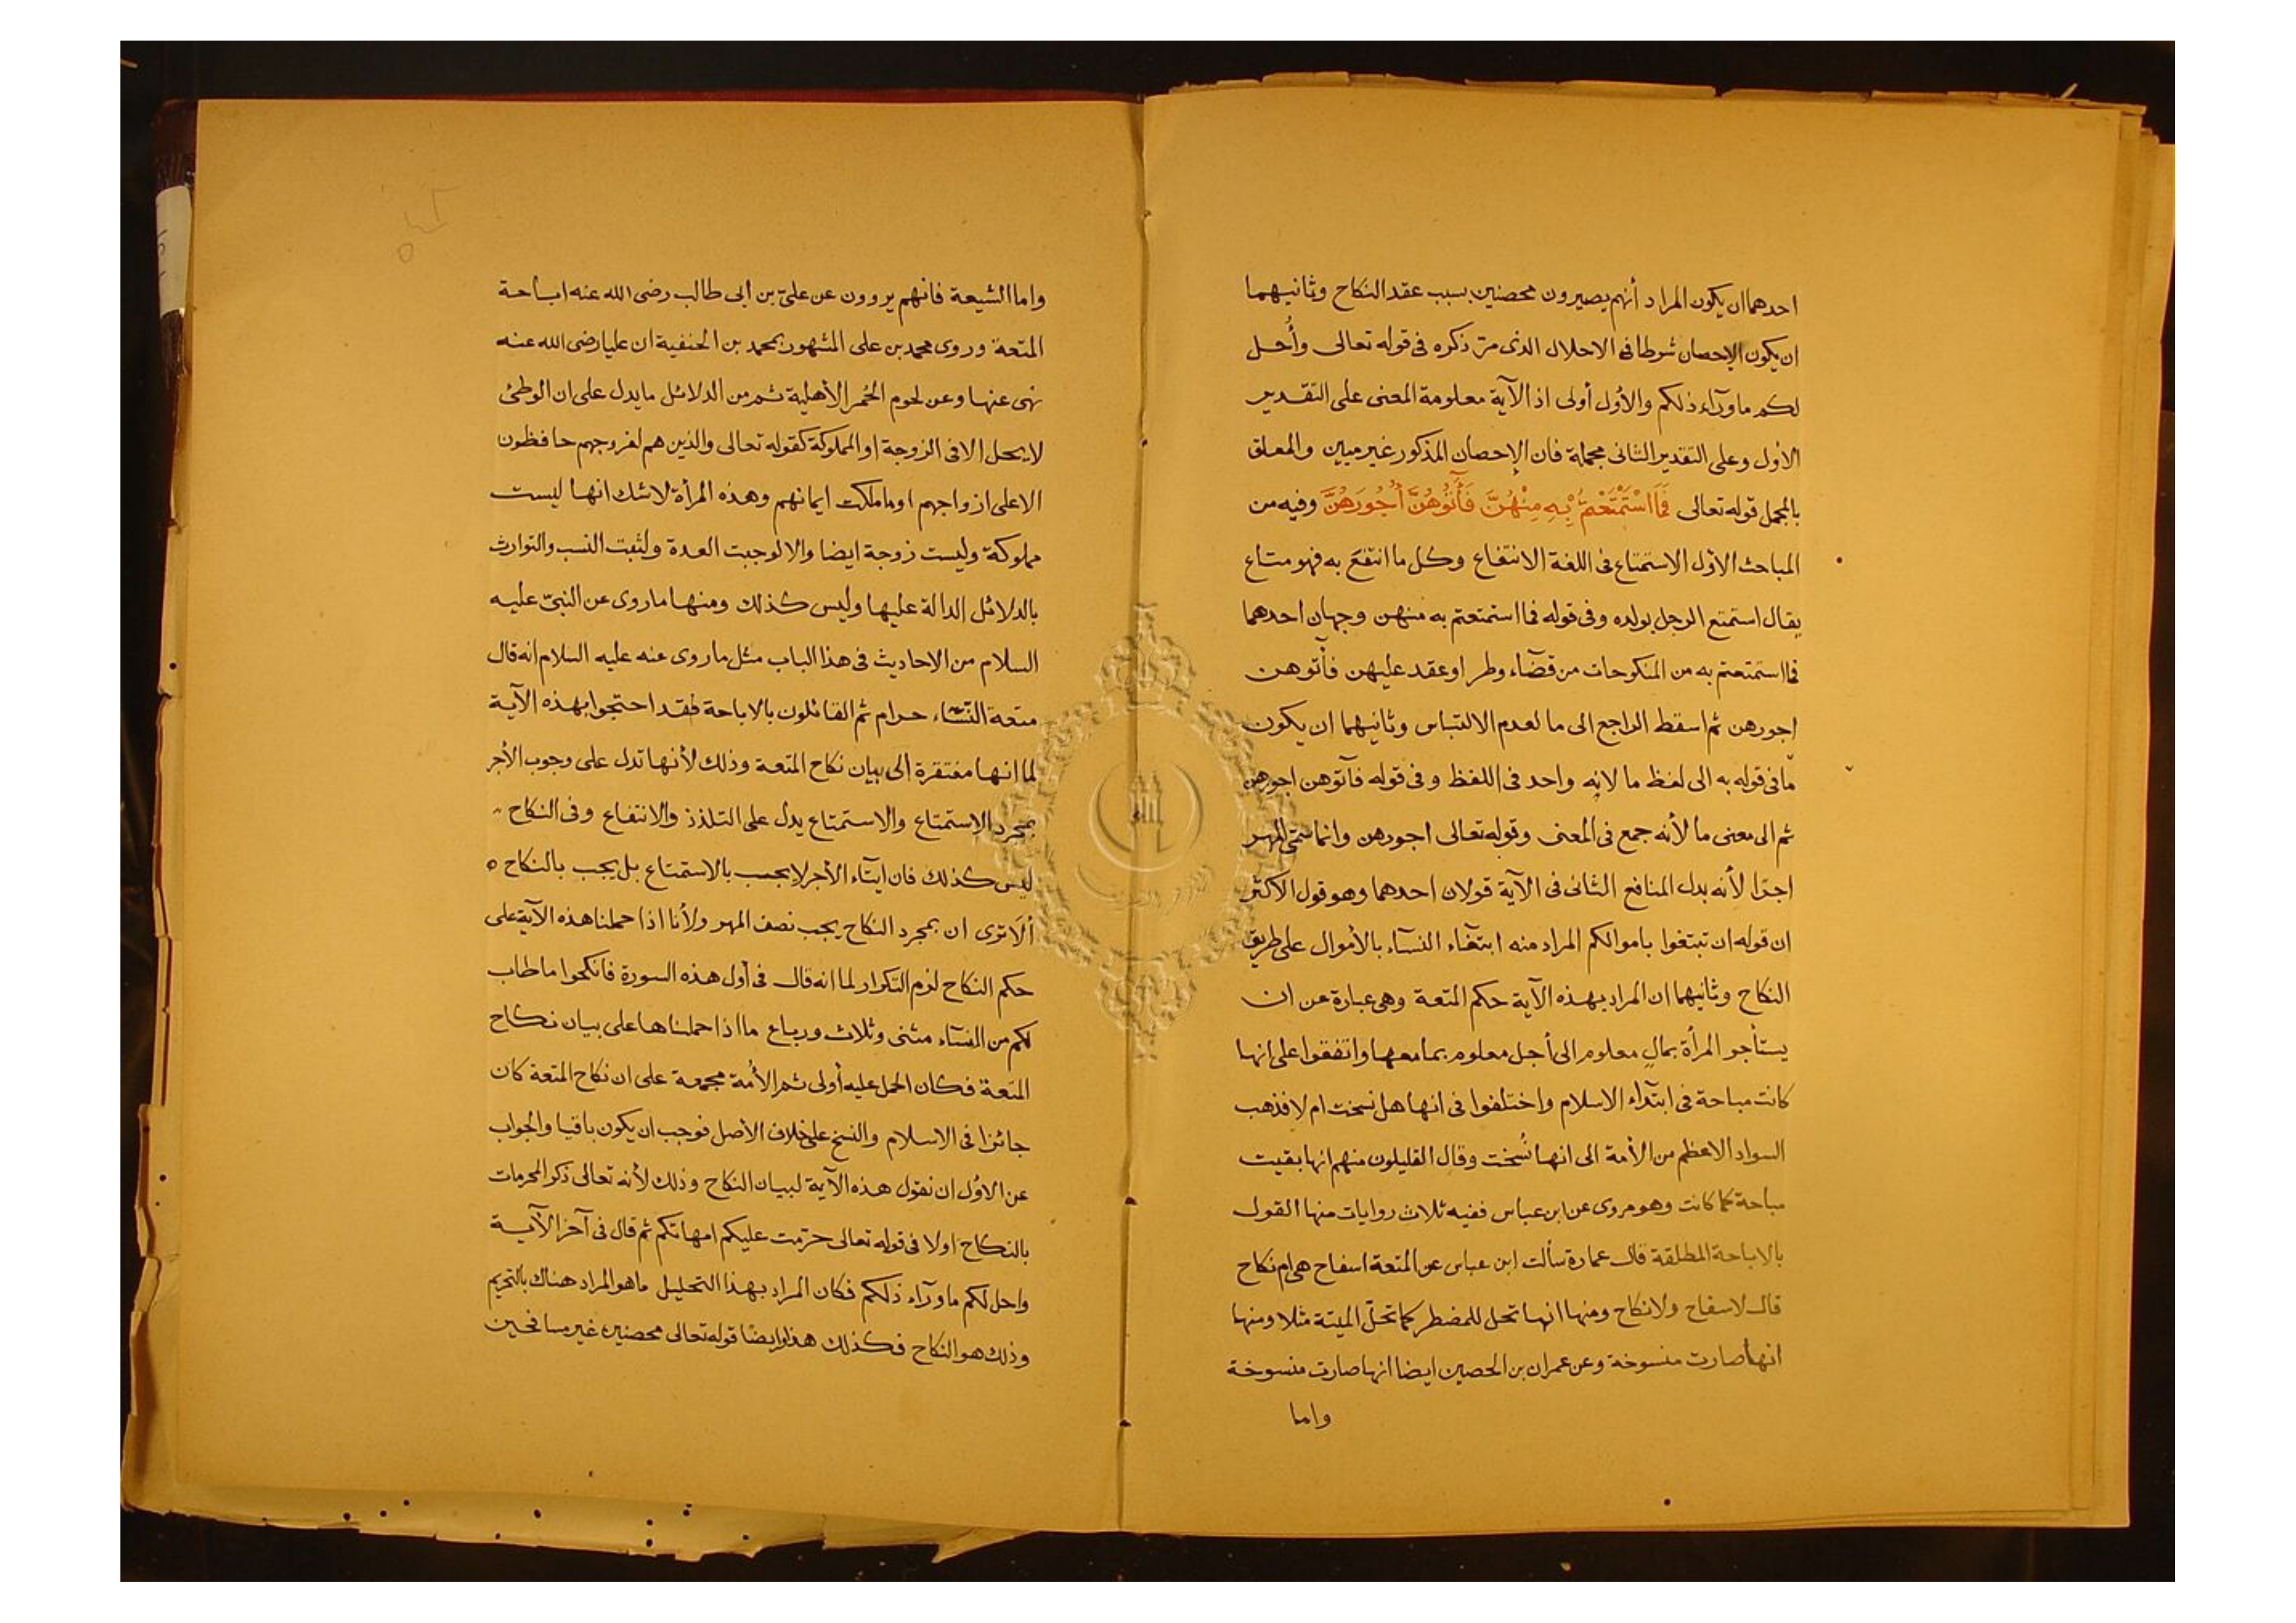 احدهما ان يكون المراد أنهم يصيرون محصنين بسبب عقد النكاح وثانيهما
ان يكون الإحصان شرطا في الاحلال الذى مرّ ذكره في قوله تعالى وأُحل
لكم ما ورآء ذلكم والأول أولى اذ الآية معلومة المعنى على التقدير
الاول وعلى التقدير الثانى مجملة فان الإحصان المذكور غير مبين والمعلق
بالمجمل قوله تعالى فَمَا اسْتَمْتَعْتُمْ بِهِ مِنْهُنَّ فَأْتُوهُنَّ أُجُورَهُنَّ وفيه من
المباحث الأول الاستمتاع في اللغة الانتفاع وكل ما انتفع به فهو متاع
يقال استمتع الرجل بولده وفى قوله فما استمتعتم به منهن وجهان احدهما
فما استمتعتم به من المنكوحات من قضآء وطر او عقد عليهن فأتوهن
اجورهن ثم اسقط الراجع الى ما لعدم الالتباس وثانيهما ان يكون
ما فى قوله به الى لفظ ما لانه واحد فى اللفظ وفى قوله فآتوهن اجورهن
ثم الى معنى ما لأنه جمع فى المعنى وقوله تعالى اجورهن وانما سمّى المهر
اجرًا لأنه بدل المنافع الثانى فى الآية قولان احدهما وهو قول الاكثر
ان قوله ان تبتغوا باموالكم المراد منه ابتغآء النسآء بالأموال على طريق
النكاح وثانيهما ان المراد بهذه الآية حكم المتعة وهى عبارة عن ان
يستأجر المرأة بمالٍ معلوم الى أجل معلوم بما معها واتفقوا على انها
كانت مباحة فى ابتدآء الاسلام واختلفوا فى انها هل نسخت ام لا فذهب
السواد الاعظم من الأمة الى انها نُسخت وقال القليلون منهم انها بقيت
مباحة كما كانت وهو مروى عن ابن عباس ففيه ثلاث روايات منها القول
بالاباحة المطلقة قال عمارة سألت ابن عباس عن المتعة اسفاح هى ام نكاح
قال لا سفاح ولا نكاح ومنها انها تحل للمضطر كما تحلّ الميتة مثلا ومنها
انها صارت منسوخة وعن عمران بن الحصين ايضا انها صارت منسوخة
واما
واما الشيعة فانهم يروون عن علىّ بن أبى طالب رضى الله عنه اباحة
المتعة وروى محمد بن على المشهور بمحمد بن الحنفية ان عليا رضى الله عنه
نهى عنها وعن لحوم الحُمر الأهلية ثم من الدلائل ما يدل على ان الوطئ
لا يحل الا فى الزوجة او المملوكة كقوله تعالى والذين هم لفروجهم حافظون
الا على ازواجهم او ما ملكت ايمانهم وهذه المرأة لا شك انها ليست
مملوكة وليست زوجة ايضا والا لوجبت العدة ولثبت النسب والتوارث
بالدلائل الدالة عليها وليس كذلك ومنها ما روى عن النبىّ عليه
السلام من الاحاديث فى هذا الباب مثل ما روى عنه عليه السلام انه قال
متعة النسآء حرام ثم القائلون بالاباحة فقد احتجوا بهذه الآية
لما انها مفتقرة الى بيان نكاح المتعة وذلك لأنها تدل على وجوب الأجر
بمجرد الاستمتاع والاستمتاع يدل على التلذذ والانتفاع وفى النكاح
ليس كذلك فان ايتآء الأجر لا يجب بالاستمتاع بل يجب بالنكاح
ألا ترى ان بمجرد النكاح يجب نصف المهر ولأنا اذا حملنا هذه الآية على
حكم النكاح لزم التكرار لما انه قال فى أول هذه السورة فانكحوا ما طاب
لكم من النسآء مثنى وثلاث ورباع ما اذا حملناها على بيان نكاح
المتعة فكان الحمل عليه أولى ثم الأمة مجمعة على ان نكاح المتعة كان
جائزا فى الاسلام والنسخ على خلاف الأصل فوجب ان يكون باقيا والجواب
عن الاوّل ان نقول هذه الآية لبيان النكاح وذلك لأنه تعالى ذكر المحرمات
بالنكاح اولا فى قوله تعالى حرّمت عليكم امهاتكم ثم قال فى آخر الآية
واحل لكم ما ورآء ذلكم فكان المراد بهذا التحليل ما هو المراد هناك بالتحريم
وذلك هو النكاح فكذلك هذا وايضًا قوله تعالى محصنين غير مسافحين